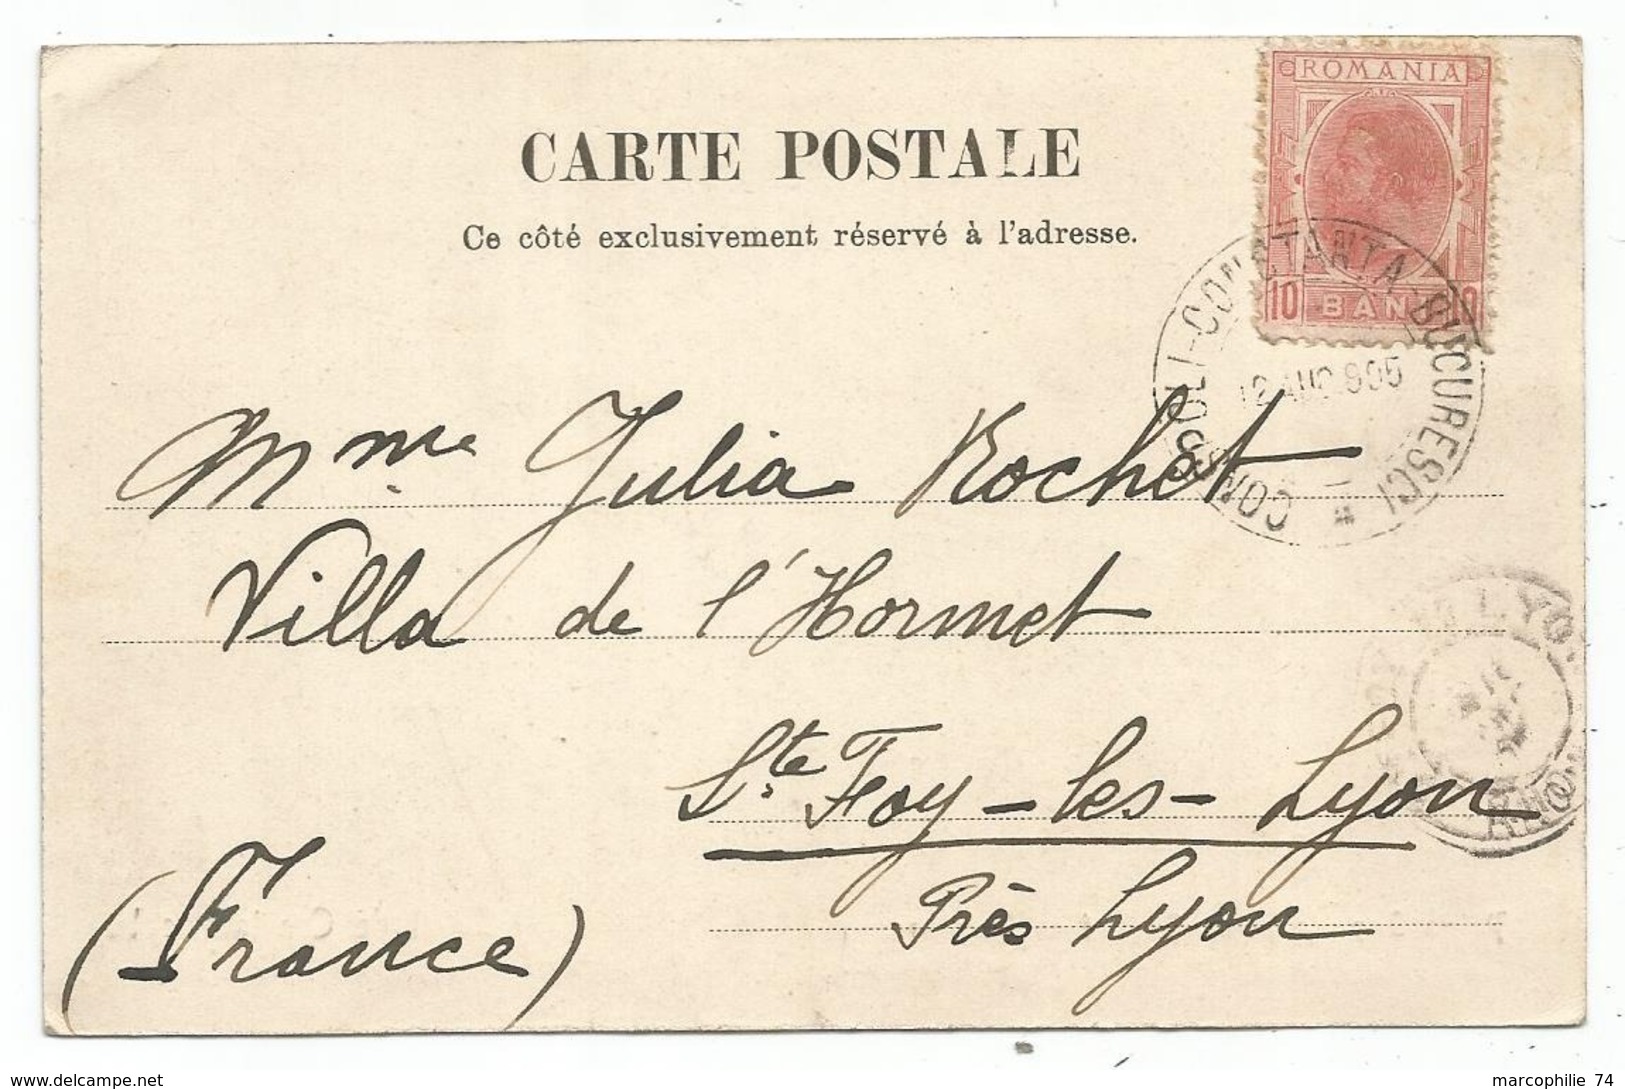 ROMANIA
CARTE POSTALE
Ce côté exclusivement réservé à l'adresse.
10 BANI 10
CONSPOLI-CONSTANTA-BUCURESCI
12 AUG 905
Mme Julia Rochet
Villa de l'Hormet
LYON
RHONE
Ste Foy-les-Lyon
Près Lyon
(France)
marcophilie 74